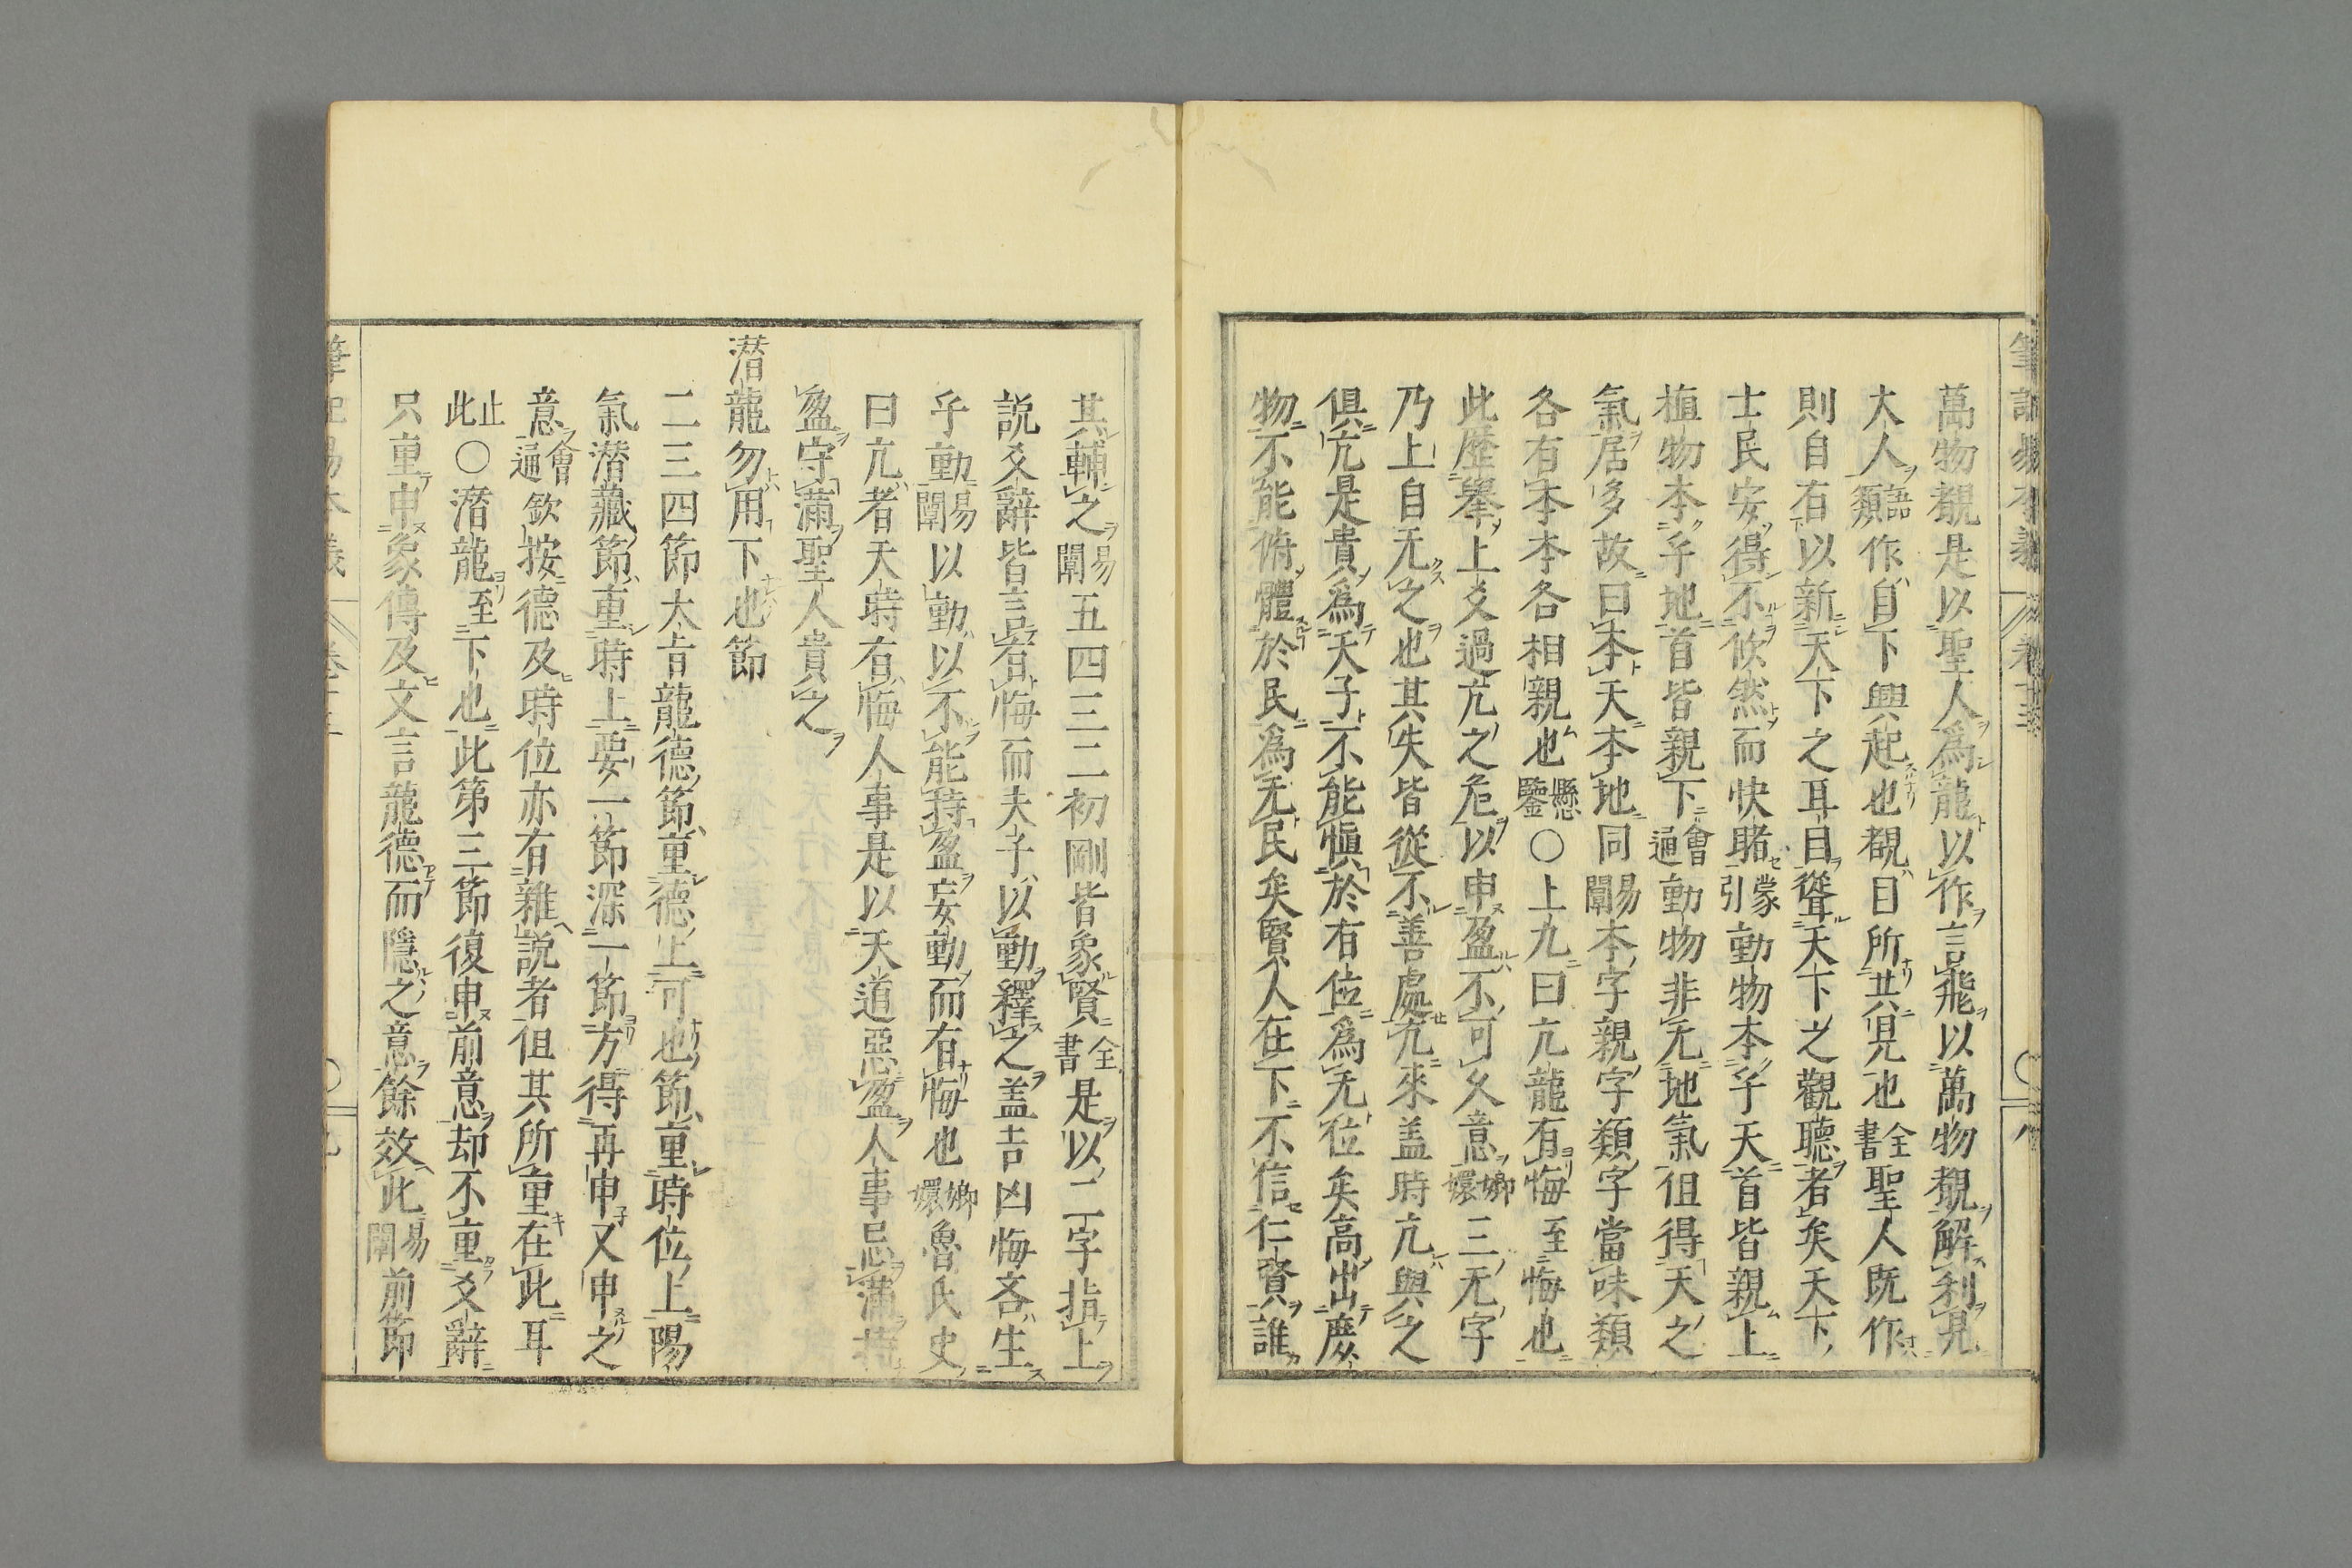 萬物覩是以聖人爲龍以作言飛以萬物覩解利見
大人語類作自下興起也覩目所共見也全書聖人既作
則自有以新天下之耳目聳天下之觀聽者矣天下
士民安得不欣然而快睹蒙引動物本乎天首皆親上
植物本乎地首皆親下會通動物非无地氣但得天之
氣居多故曰本天本地同易闡本字親字類字當味類
各有本本各相親也懸鑒○上九曰亢龍有悔至悔也
此歷舉上爻過亢之危以申盈不可久意嫏嬛三无字
乃上自无之也其失皆從不善處亢來盖時亢與之
俱亢是貴爲天子不能愼於有位爲无位矣高出庶
物不能俯體於民爲无民矣賢人在下不信仁賢誰
其輔之易闡五四三二初剛皆象賢全書是以二字指上
說爻辭皆言有悔而夫子以動釋之盖吉凶悔吝生
乎動易闡以動以不能持盈妄動而有悔也嫏嬛魯氏史
曰亢者天時有悔人事是以天道惡盈人事忌滿持
盈守滿聖人貴之
潛龍勿用下也節
二三四節大旨龍德節重德上可也節重時位上陽
氣潛藏節重時上要一節深一節方得再申又申之
意會通欽按德及時位亦有雜說者但其所重在此耳
止此○潛龍至下也此第三節復申前意却不重爻辭
只重申象傳及文言龍德而隱之意餘效此易闡前節